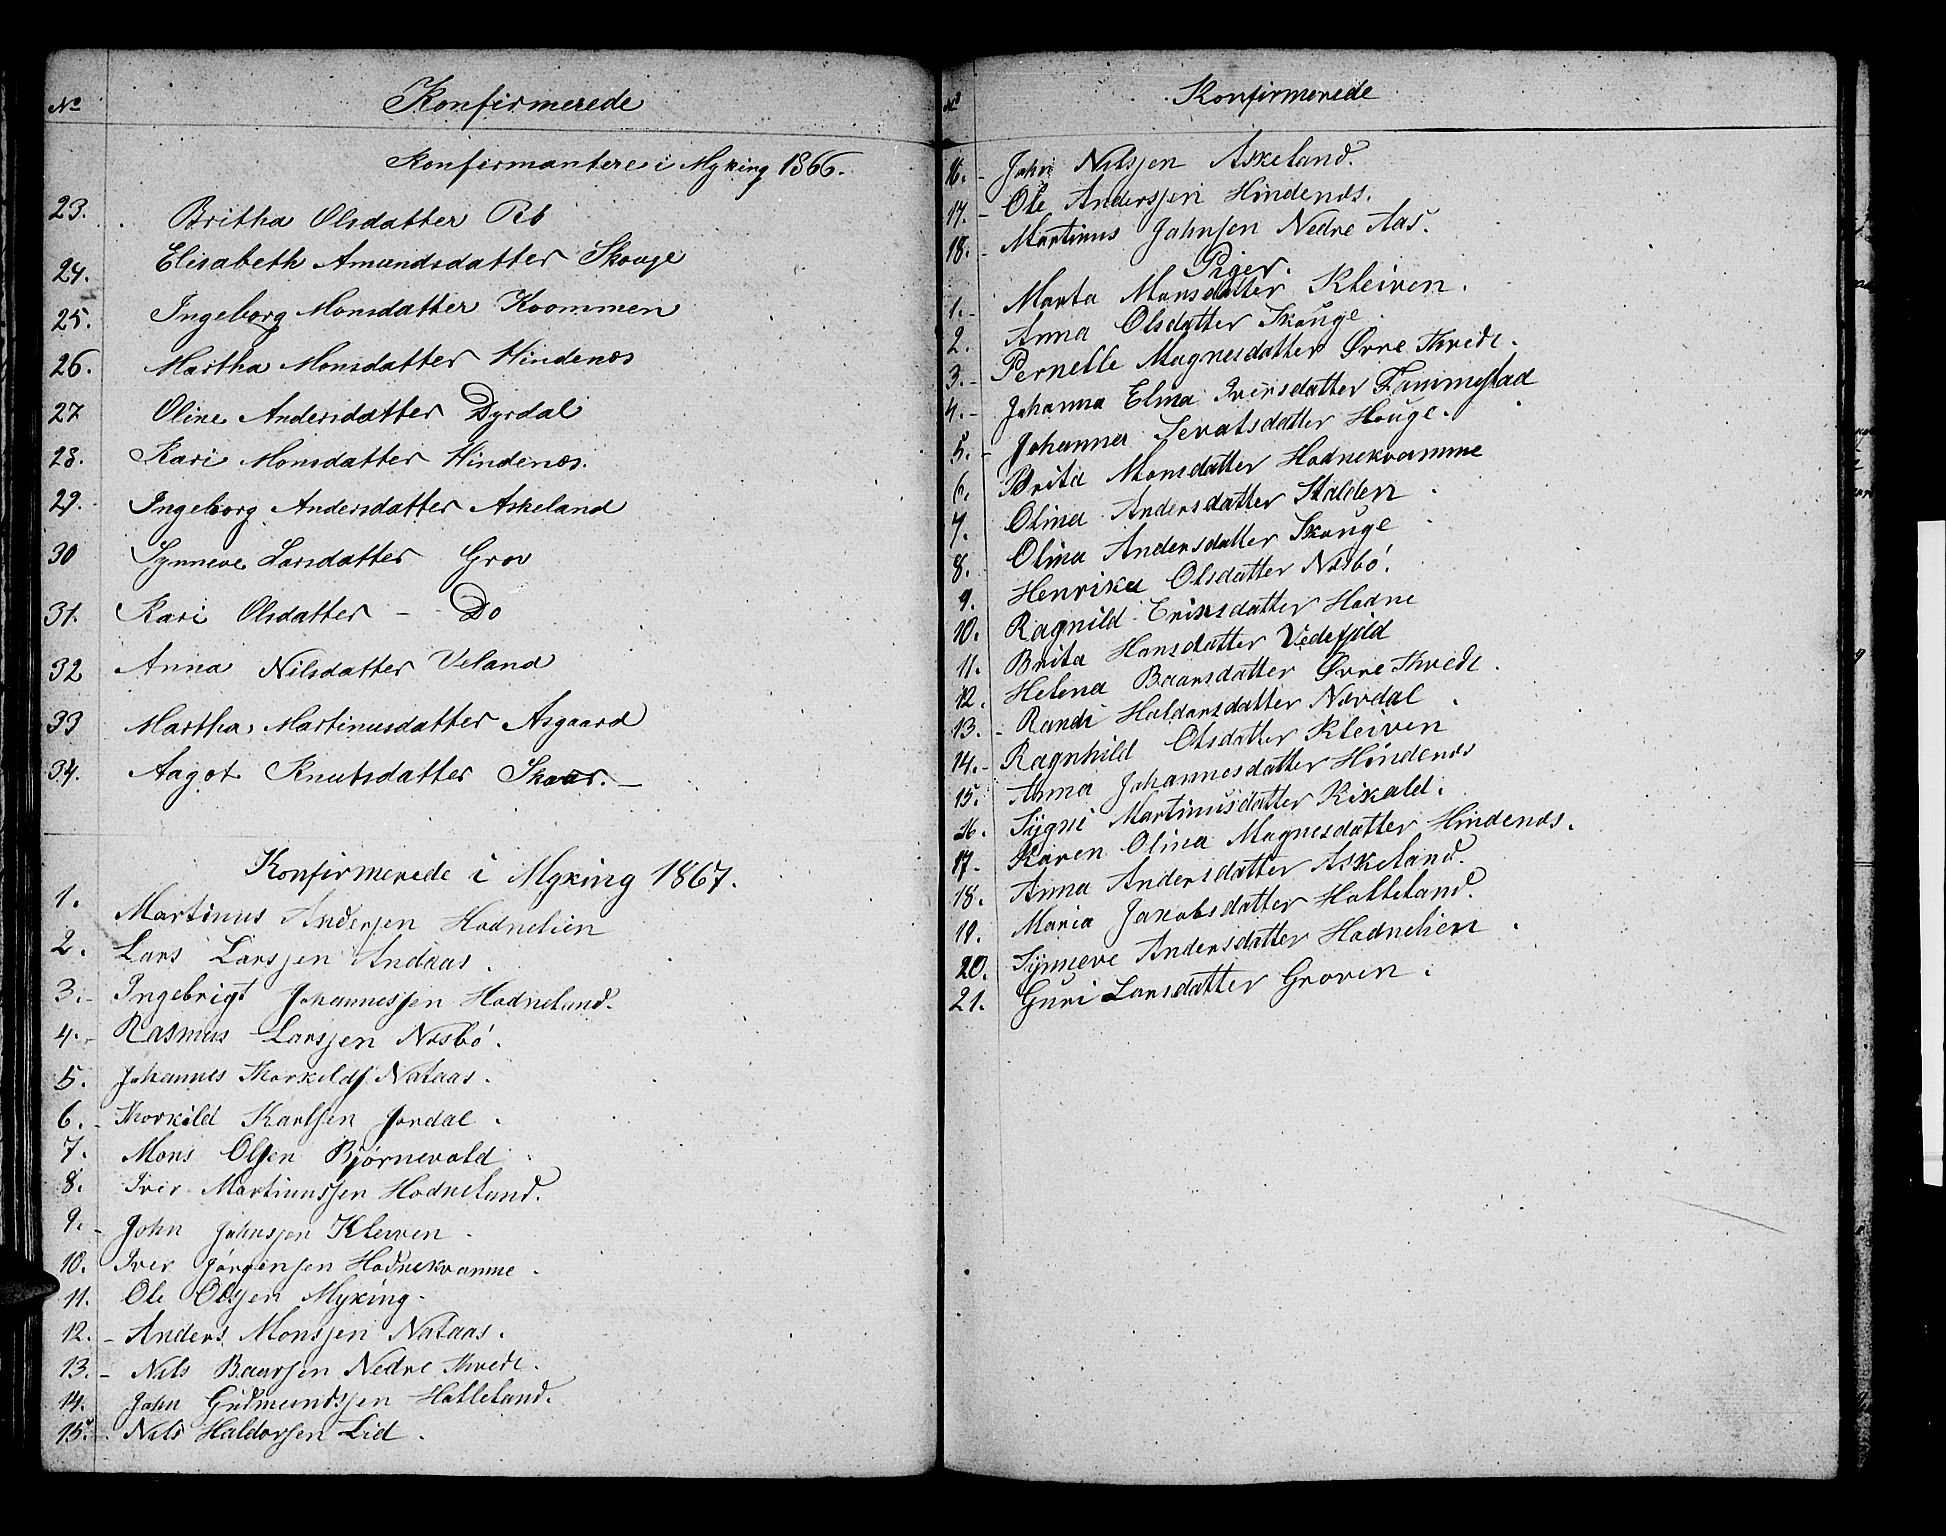 No
Konfirmerede
Konfirmantere i Myking 1866.
23. Britha Olsdatter Rb
24. Elisabeth Amundsdatter Skouge
25. Ingeborg Monsdatter Kvommen
26. Martha Monsdatter Hindenæs
27 Oline Andersdatter Dyrdal
28. Kari Monsdatter Hindenæs.
29. Ingeborg Andersdatter Askeland
30 Synneve Larsdatter Grov
31. Kari Olsdatter - Do
32 Anna Nilsdatter Veland
33 Martha Martinusdatter Asgaard
34. Aagot Knutsdatter Skaar. —
Konfirmerede i Myking 1867.
1. Martinus Andersen Hodnelien
2. Lars Larsjen Andaas.
3. - Ingebrigt Johannesjen Hodneland.
4. - Rasmus Larsjen Næsbö.
5. Johannes Thorkilds Nataas.
6. - Thorkild Karlsen Jordal.
7. Mons Olsen Bjørnevold
8. Iver Martinusjen Hodneland.
9. - John Johnsjen Kleiven.
10. Iver Jörgensen Hodnekvamme.
11. Ole Olsjen Myking.
12. - Anders Monsjen Nataas.
13. - Nils Baarsjen Nedre Thvedt.
14. John Gudmundsjen Halleland.
15. Nils Haldorsen Lid.
No
Konfirmerede
16. - John Nilsjen Askeland.
17. - Ole Andersjen Hindenæs.
18. - Martinus Johnsen Nedre Aas.
Piger.
1. - Marta Monsdatter Kleiven.
2. Anna Olsdatter Skouge.
3. - Pernelle Magnesdatter Øvre Thvedt.
4. - Johanna Elina Iversdatter Fammestad
5. - Johanna Sevatsdatter Houge.
6. Brita Monsdatter Hodnekvamme
7. Olina Andersdatter Stalden.
8. Olina Andersdatter Skouge
9. Henrika Olsdatter Næsbö.
10. Ragnild Eriksdatter Hodne
11. Brita Hansdatter Vedefjeld
12. Helena Baarsdatter Øvre Thvedt.
13. - Randi Haldorsdatter Nordal.
14. - Ragnhild Olsdatter Kleiven
15. Anna Johannesdatter Hindenæs
16. Sygni Martinusdatter Rixald.
17 - Karen Olina Magnesdatter Hindenæs.
18. Anna Andersdatter Askeland.
19. Maria Jakobsdatter Halleland.
20. Synneve Andersdatter Hodnelien.
21. Guri Larsdatter Groven.